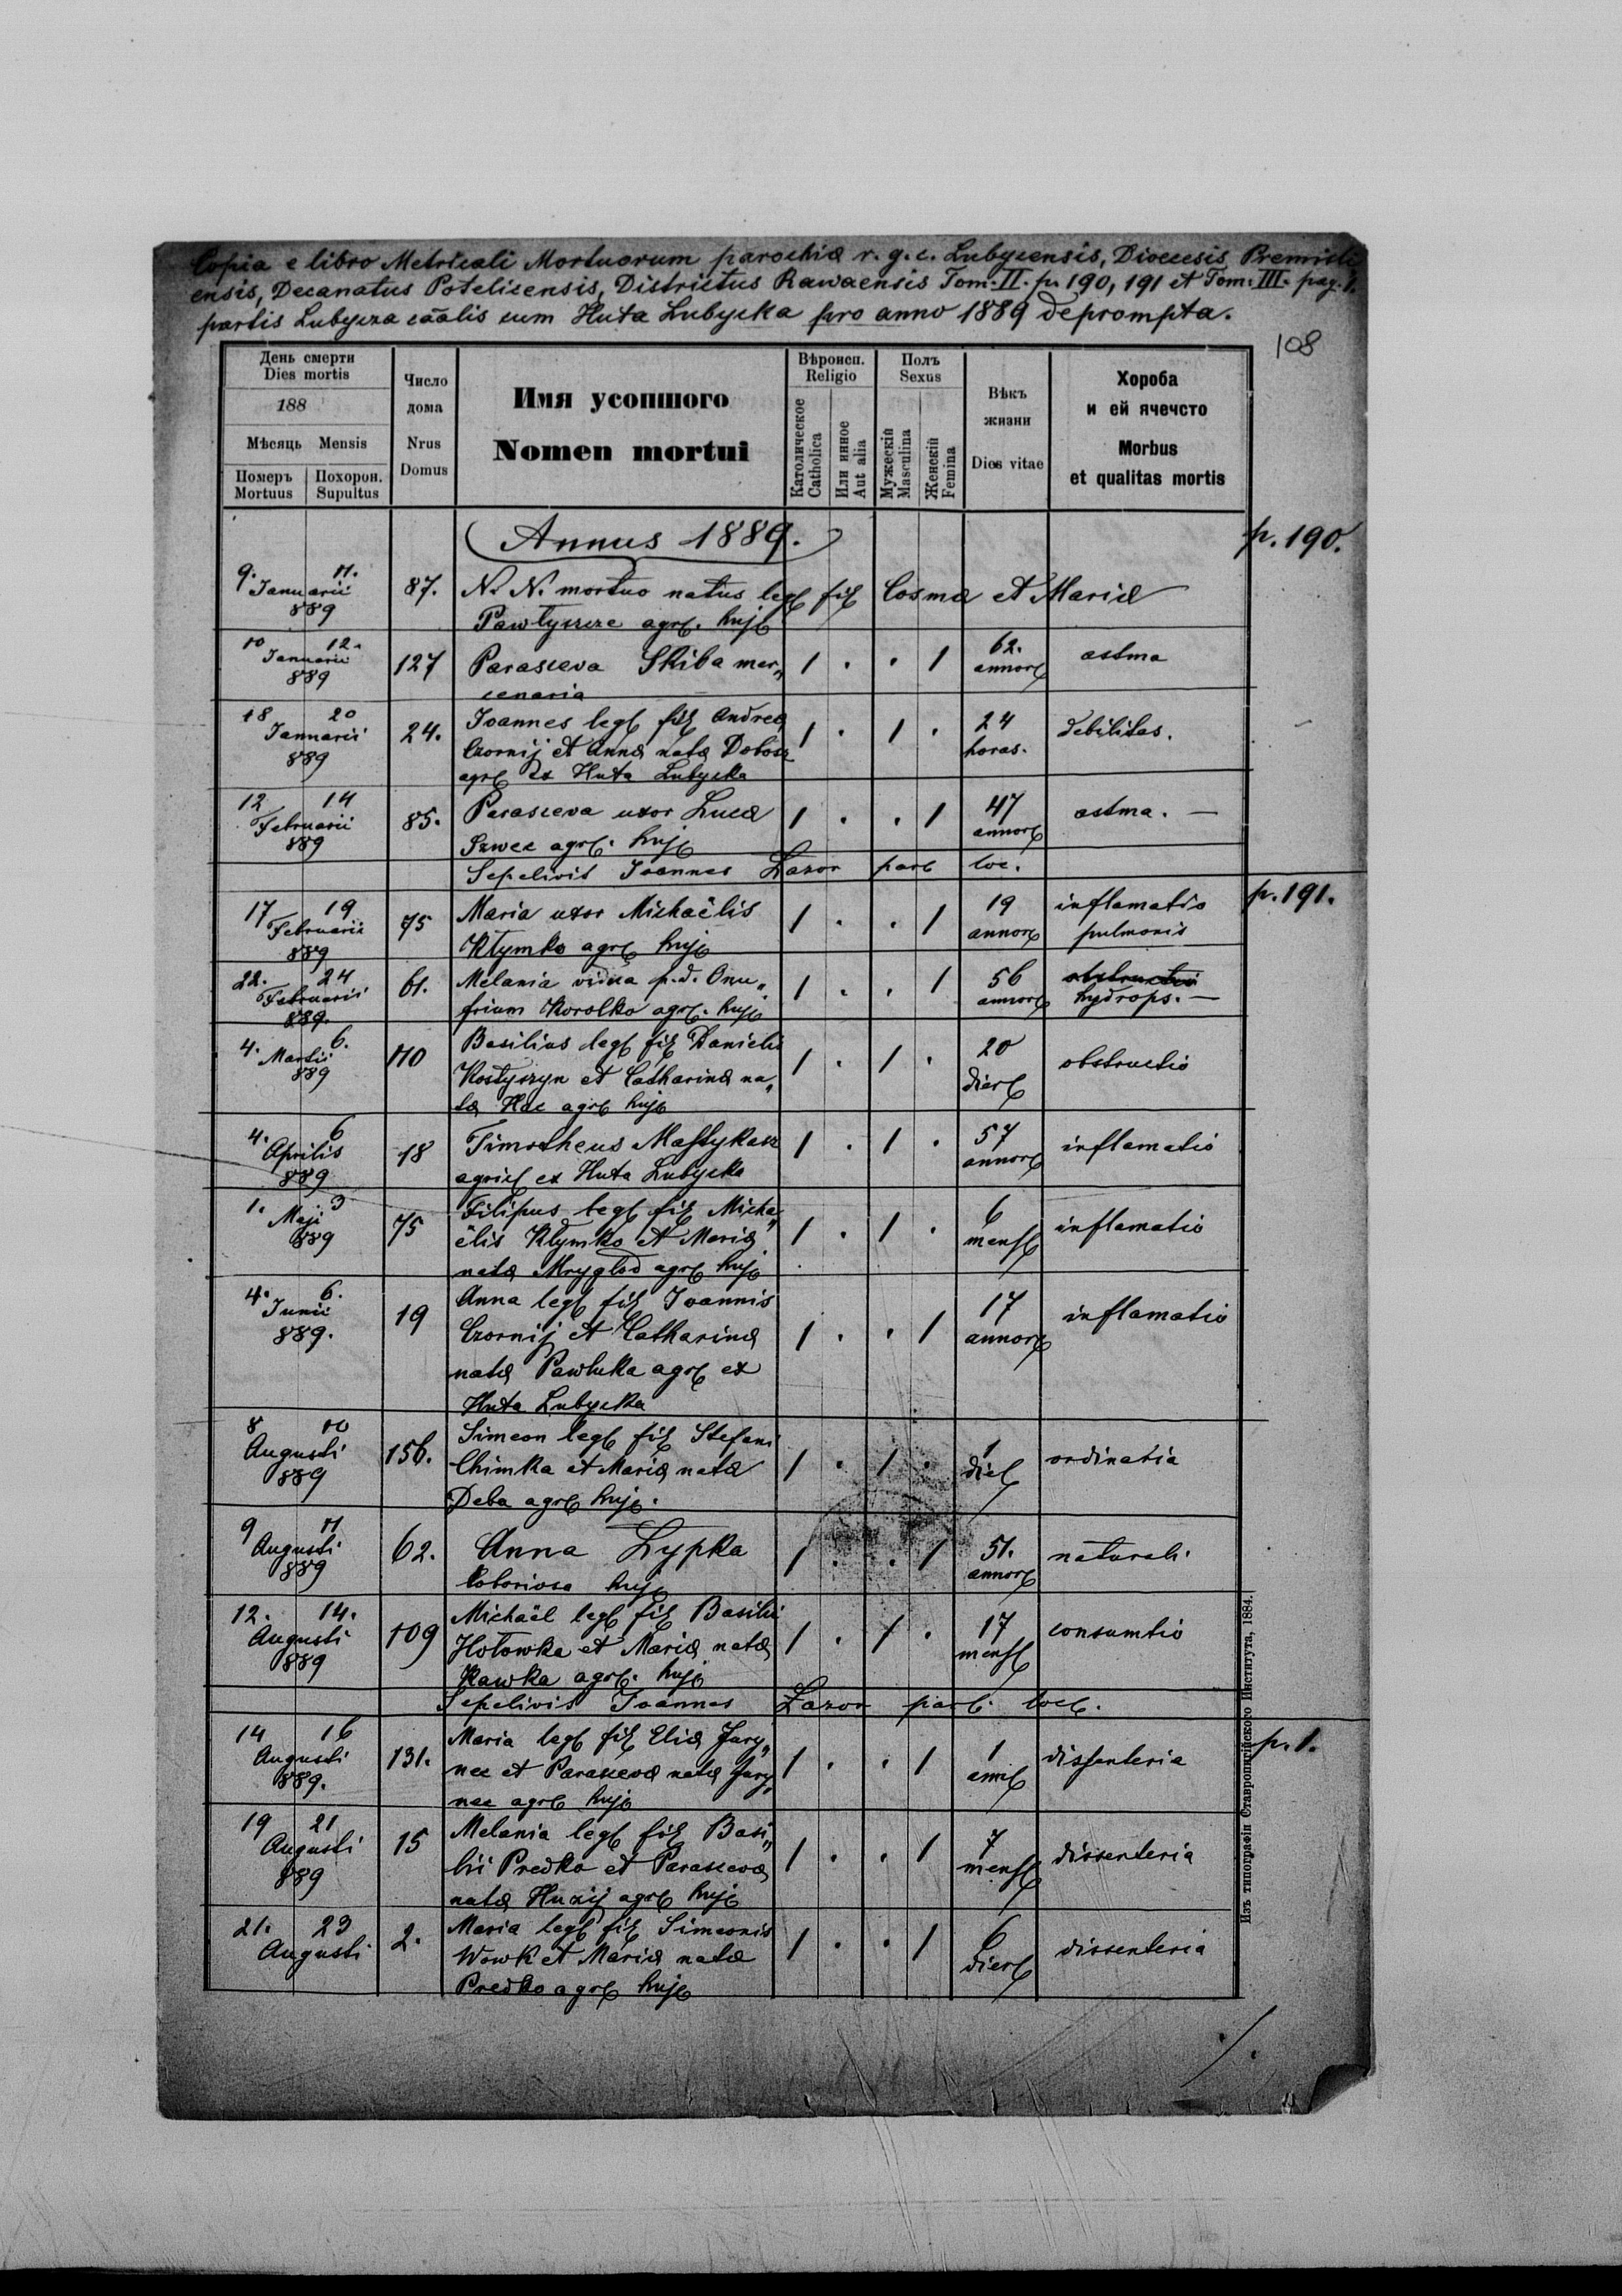 Copia e libro Metricali Mortuorum parochiæ r. g. c. Lubycensis, Dioecesis Premisli
ensis, Decanatus Potelicensis, Districtus Rawaensis Tom. II. p. 190, 191 et Tom. III. pag. 1.
partis Lubycza cãalis cum Huta Lubycka pro anno 1889 deprompta.
108
День смерти
Dies mortis
188
Мѣсяць Mensis
Померъ Mortuus
Похорон. Supultus
Число дома
Nrus Domus
Имя усопшого
Nomen mortui
Вѣроисп.
Religio
Католическое Catholica
Или инное Aut alia
Полъ
Sexus
Мужескій Masculina
Женскій Femina
Вѣкъ жизни
Dies vitae
Хороба
и ей ячечсто
Morbus
et qualitas mortis
Annus 1889.
p. 190.
9. 11. Januarii 889 87. N. N. mortuo natus leg fil Cosmæ et Mariæ
Pawłyszcze agr. huj
10 12. Januarii 889 127 Parasceva Skiba mer„ 1 . . 1 62. annor astma
cenaria
18 20 Januarii 889 24. Joannes leg fil Andreæ 1 . 1 . 24 horas. debilitas.
Czornij et Annæ natæ Dobosz
agr ex Huta Lubycka
12 14 Februarii 889 85. Parasceva uxor Lucæ 1 . . 1 47 annor astma. —
Szwec agr. huj
Sepelivit Joannes Lazor par loc.
17 19 Februarii 889 75 Maria uxor Michaëlis 1 . . 1 19 annor inflamatio pulmonis
p. 191.
Kłymko agr huj
22. 24 Februarii 889. 61. Melania vidua p. d. Onu„ 1 . . 1 56 annor obstructio hydrops. —
frium Korolko agr. huj
4. 6. Martii 889 110 Basilius leg fil Danielis 1 . 1 . 20 dier obstructio
Kostyszyn et Catharinæ na„
tæ Hac agr huj
4. 6 Aprilis 889 18 Timotheus Mastykasz 1 . 1 . 57 annor inflamatio
agric ex Huta Lubycka
1. 3 Maji 889 75 Filipus leg fil Micha„ 1 . 1 . 6 mens inflamatio
ëlis Kłymko et Mariæ
natæ Mrygłod agr huj
4. 6. Junii 889. 19 Anna leg fil Joannis 1 . . 1 17 annor inflamatio
Czornij et Catharinæ
natæ Pawluka agr ex
Huta Lubycka
8 10 Augusti 889 156. Simeon leg fil Stefani 1 . 1 . 1 diei ordinatia
Chimka et Mariæ natæ
Deba agr huj.
9 11 Augusti 889 62. Anna Lypka 1 . . 1 51. annor naturali.
laboriosa huj
12. 14. Augusti 889 109 Michaël leg fil Basilii 1 . 1 . 17 mens consumtio
Hołowka et Mariæ natæ
Kawka agr. huj
Sepelivit Joannes Lazor par. loc.
14 16 Augusti 889. 131. Maria leg fil Eliæ Jary„ 1 . . 1 1 anni dissenteria
p. 1.
nec et Parascevæ natæ Jary„
nec agr huj
19 21 Augusti 889 15 Melania leg fil Basi„ 1 . . 1 7 mens dissenteria
lii Predko et Parascevæ
natæ Huzij agr huj
21. 23 Augusti 2. Maria leg fil Simeonis 1 . . 1 6 dier dissenteria
Wowk et Mariæ natæ
Predko agr huj
./.
Изъ типографіи Ставропигійского Института, 1884.